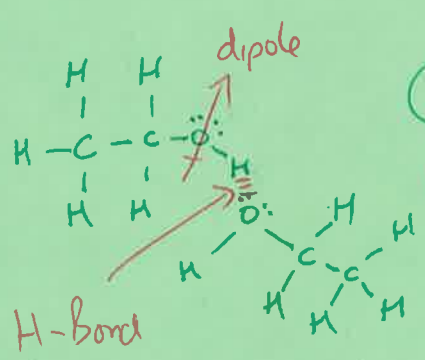 dipole
H H
H - C - C - O
H
H H
O
H
H
H
C
C
H
H
H
H-Bond